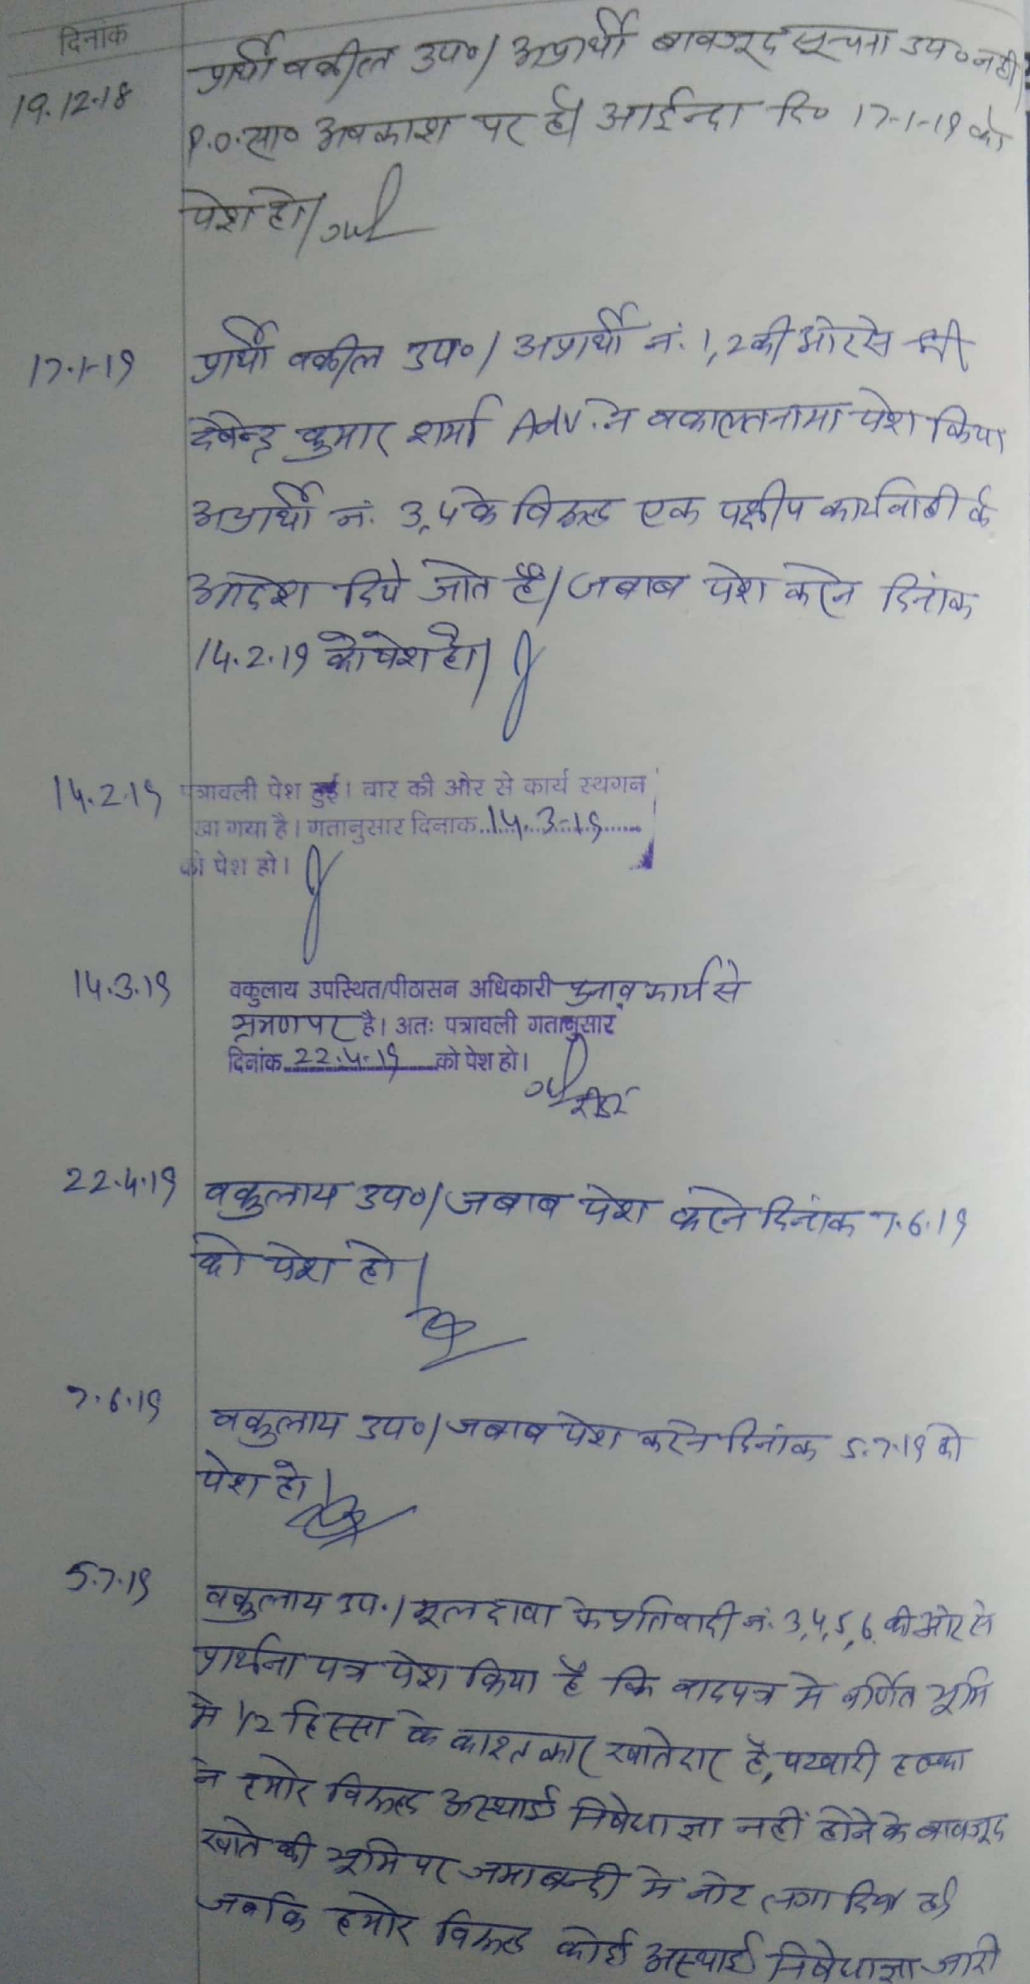 दिनांक
19.12.18 प्रार्थी वकील उप०/ अप्रार्थी बावजूद सूचना उप० नहीं/
P.O. सा० अवकाश पर है/ आईन्दा दि० 17-1-19 को
पेश हो/
17.1.19 प्रार्थी वकील उप०/ अप्रार्थी नं. 1,2 की ओर से श्री
देवेन्द्र कुमार शर्मा Adv. ने वकालतनामा पेश किया
अप्रार्थी नं. 3,4 के विरूद्ध एक पक्षीय कार्यवाही के
आदेश दिये जाते है/ जबाब पेश करने दिनांक
14.2.19 को पेश हो/
14.2.19 पत्रावली पेश हुई। वार की ओर से कार्य स्थगन
खा गया है। गतानुसार दिनाक..14.3-19......
को पेश हो।
14.3.19 वकुलाय उपस्थित/पीठासन अधिकारी चुनाव कार्य से
भ्रमण पर है। अतः पत्रावली गतानुसार
दिनांक 22.4.19 को पेश हो।
रीडर
22.4.19 वकुलाय उप०/ जबाब पेश करने दिनांक 7.6.19
को पेश हो/
7.6.19 वकुलाय उप०/ जबाब पेश करने दिनांक 5.7.19 को
पेश हो/
5.7.19 वकुलाय उप./ मूल दावा के प्रतिवादी नं. 3,4,5,6 की ओर से
प्रार्थना पत्र पेश किया है कि वादपत्र मे वर्णित भूमि
मे 1/2 हिस्सा के काश्तकार खातेदार है, पटवारी हल्का
ने हमारे विरूद्ध अस्थाई निषेधाज्ञा नहीं होने के बावजूद
खाते की भूमि पर जमाबन्दी मे नोट लगा दिया है
जबकि हमारे विरूद्ध कोई अस्थाई निषेधाज्ञा जारी